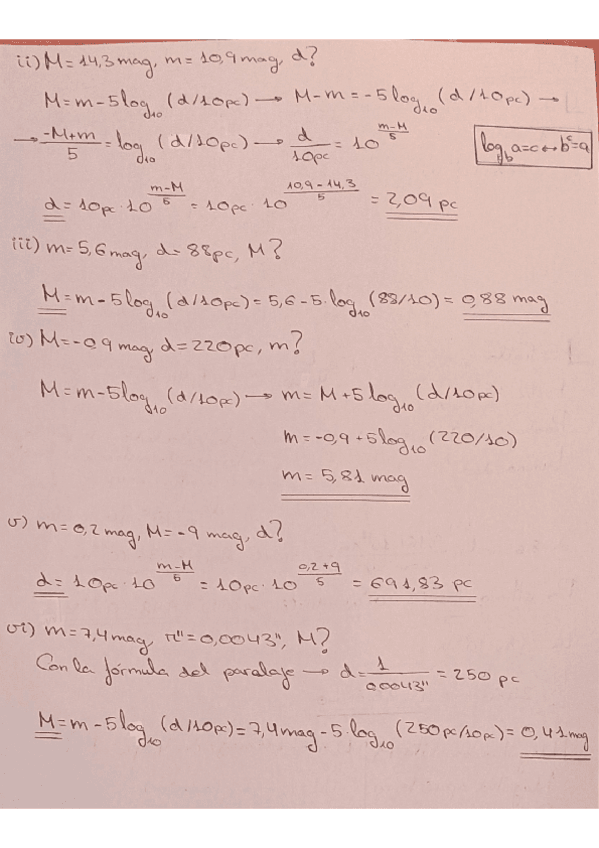 ii) M = 14,3 mag, m = 10,9 mag, d?
M = m - 5 log₁₀ (d/10pc) → M - m = -5 log₁₀ (d/10pc) →
→ (-M+m)/5 = log₁₀ (d/10pc) → d/10pc = 10^((m-M)/5)
log_b a = c ↔ b^c = a
d = 10pc · 10^((m-M)/5) = 10pc · 10^((10,9-14,3)/5) = 2,09 pc
iii) m = 5,6 mag, d = 88pc, M?
M = m - 5 log₁₀ (d/10pc) = 5,6 - 5·log₁₀ (88/10) = 0,88 mag
iv) M = -0,9 mag d = 220pc, m?
M = m - 5 log₁₀ (d/10pc) → m = M + 5 log₁₀ (d/10pc)
m = -0,9 + 5 log₁₀ (220/10)
m = 5,81 mag
v) m = 0,2 mag, M = -9 mag, d?
d = 10pc · 10^((m-M)/5) = 10pc · 10^((0,2+9)/5) = 691,83 pc
vi) m = 7,4 mag, π" = 0,0043", M?
Con la fórmula del paralaje → d = 1/0,0043" = 250 pc
M = m - 5 log₁₀ (d/10pc) = 7,4 mag - 5·log₁₀ (250pc/10pc) = 0,41 mag